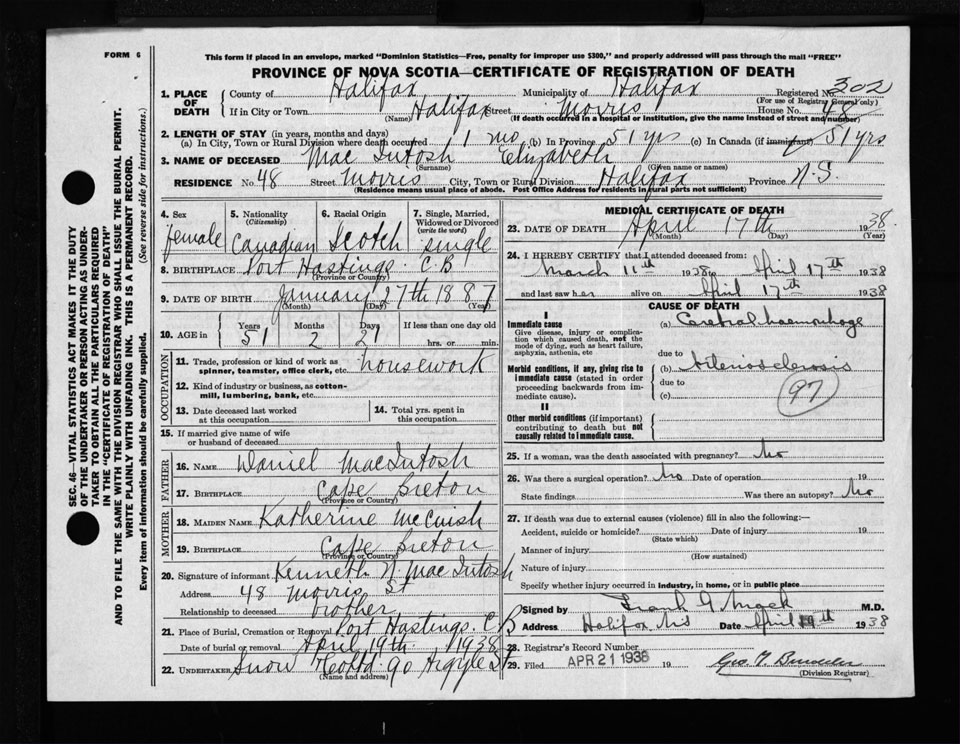 FORM 6
This form if placed in an envelope, marked "Dominion Statistics—Free, penalty for improper use $300," and properly addressed will pass through the mail "FREE"
PROVINCE OF NOVA SCOTIA—CERTIFICATE OF REGISTRATION OF DEATH
SEC. 46—VITAL STATISTICS ACT MAKES IT THE DUTY
OF THE UNDERTAKER OR PERSON ACTING AS UNDER-
TAKER TO OBTAIN ALL THE PARTICULARS REQUIRED
IN THE "CERTIFICATE OF REGISTRATION OF DEATH"
AND TO FILE THE SAME WITH THE DIVISION REGISTRAR WHO SHALL ISSUE THE BURIAL PERMIT.
WRITE PLAINLY WITH UNFADING INK. THIS IS A PERMANENT RECORD.
Every item of information should be carefully supplied. (See reverse side for instructions.)
1. PLACE OF DEATH County of Halifax Municipality of Halifax Registered No. 302
(For use of Registrar General only)
If in City or Town Halifax Street Morris House No. 48
(Name) (If death occurred in a hospital or institution, give name instead of street and number)
2. LENGTH OF STAY (in years, months and days)
(a) In City, Town or Rural Division where death occurred 1 mo. (b) In Province 51 yrs (c) In Canada (if immigrant) 51 yrs
3. NAME OF DECEASED MacIntosh Elizabeth
(Surname) (Given name or names)
RESIDENCE No. 48 Street Morris City, Town or Rural Division Halifax Province N.S.
(Residence means usual place of abode. Post Office Address for residents in rural parts not sufficient)
4. Sex 5. Nationality 6. Racial Origin 7. Single, Married,
(Citizenship) Widowed or Divorced
(write the word)
female Canadian Scotch single
8. BIRTHPLACE Port Hastings C.B
(Province or Country)
9. DATE OF BIRTH January 27th 1887
(Month) (Day) (Year)
10. AGE in Years Months Days If less than one day old
51 2 21 hrs. or min.
OCCUPATION
11. Trade, profession or kind of work as
spinner, teamster, office clerk, etc. housework
12. Kind of industry or business, as cotton-
mill, lumbering, bank, etc.
13. Date deceased last worked
at this occupation
14. Total yrs. spent in
this occupation
15. If married give name of wife
or husband of deceased
FATHER
16. NAME Daniel MacIntosh
17. BIRTHPLACE Cape Breton
(Province or Country)
MOTHER
18. MAIDEN NAME Katherine McCuish
19. BIRTHPLACE Cape Breton
(Province or Country)
20. Signature of informant Kenneth N. MacIntosh
Address 48 Morris St
Relationship to deceased brother
21. Place of Burial, Cremation or Removal Port Hastings. C B
Date of burial or removal April 19th 1938
22. UNDERTAKER Snow & Co Ltd 90 Argyle St
(Name and address)
MEDICAL CERTIFICATE OF DEATH
23. DATE OF DEATH April 17th 1938
(Month) (Day) (Year)
24. I HEREBY CERTIFY that I attended deceased from:
March 11th 1938 to April 17th 1938
and last saw her alive on April 17th 1938
CAUSE OF DEATH
I
Immediate cause
Give disease, injury or complica-
tion which caused death, not the
mode of dying, such as heart failure,
asphyxia, asthenia, etc
(a) Cerebral haemorrhage
due to
Morbid conditions, if any, giving rise to
immediate cause (stated in order
proceeding backwards from im-
mediate cause).
(b) Arteriosclerosis
due to
(c)
97
II
Other morbid conditions (if important)
contributing to death but not
causally related to immediate cause.
25. If a woman, was the death associated with pregnancy? No
26. Was there a surgical operation? No Date of operation 19
State findings Was there an autopsy? No
27. If death was due to external causes (violence) fill in also the following:—
Accident, suicide or homicide? Date of injury 19
(State which)
Manner of injury
(How sustained)
Nature of injury
Specify whether injury occurred in industry, in home, or in public place
Signed by Frank G Mack M.D.
Address Halifax NS Date April 19th 1938
28. Registrar's Record Number
29. Filed APR 21 1938 19
(Division Registrar)